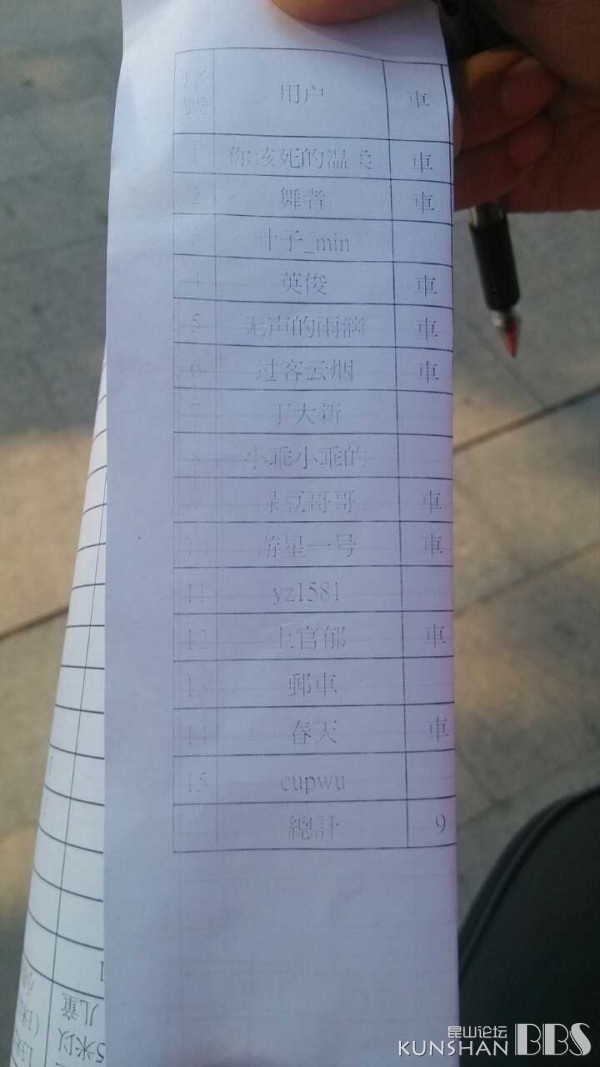 序號 用户 車
1 你该死的温柔 車
2 舞者 車
3 叶子_min
4 英俊 車
5 无声的雨滴 車
6 过客云烟 車
7 丁大新
8 小乖小乖的
9 绿豆哥哥 車
10 游星一号 車
11 yz1581
12 上官郁 車
13 郵車
14 春天 車
15 cupwu
總計 9
1
5米以
儿童
昆山论坛
KUNSHAN BBS